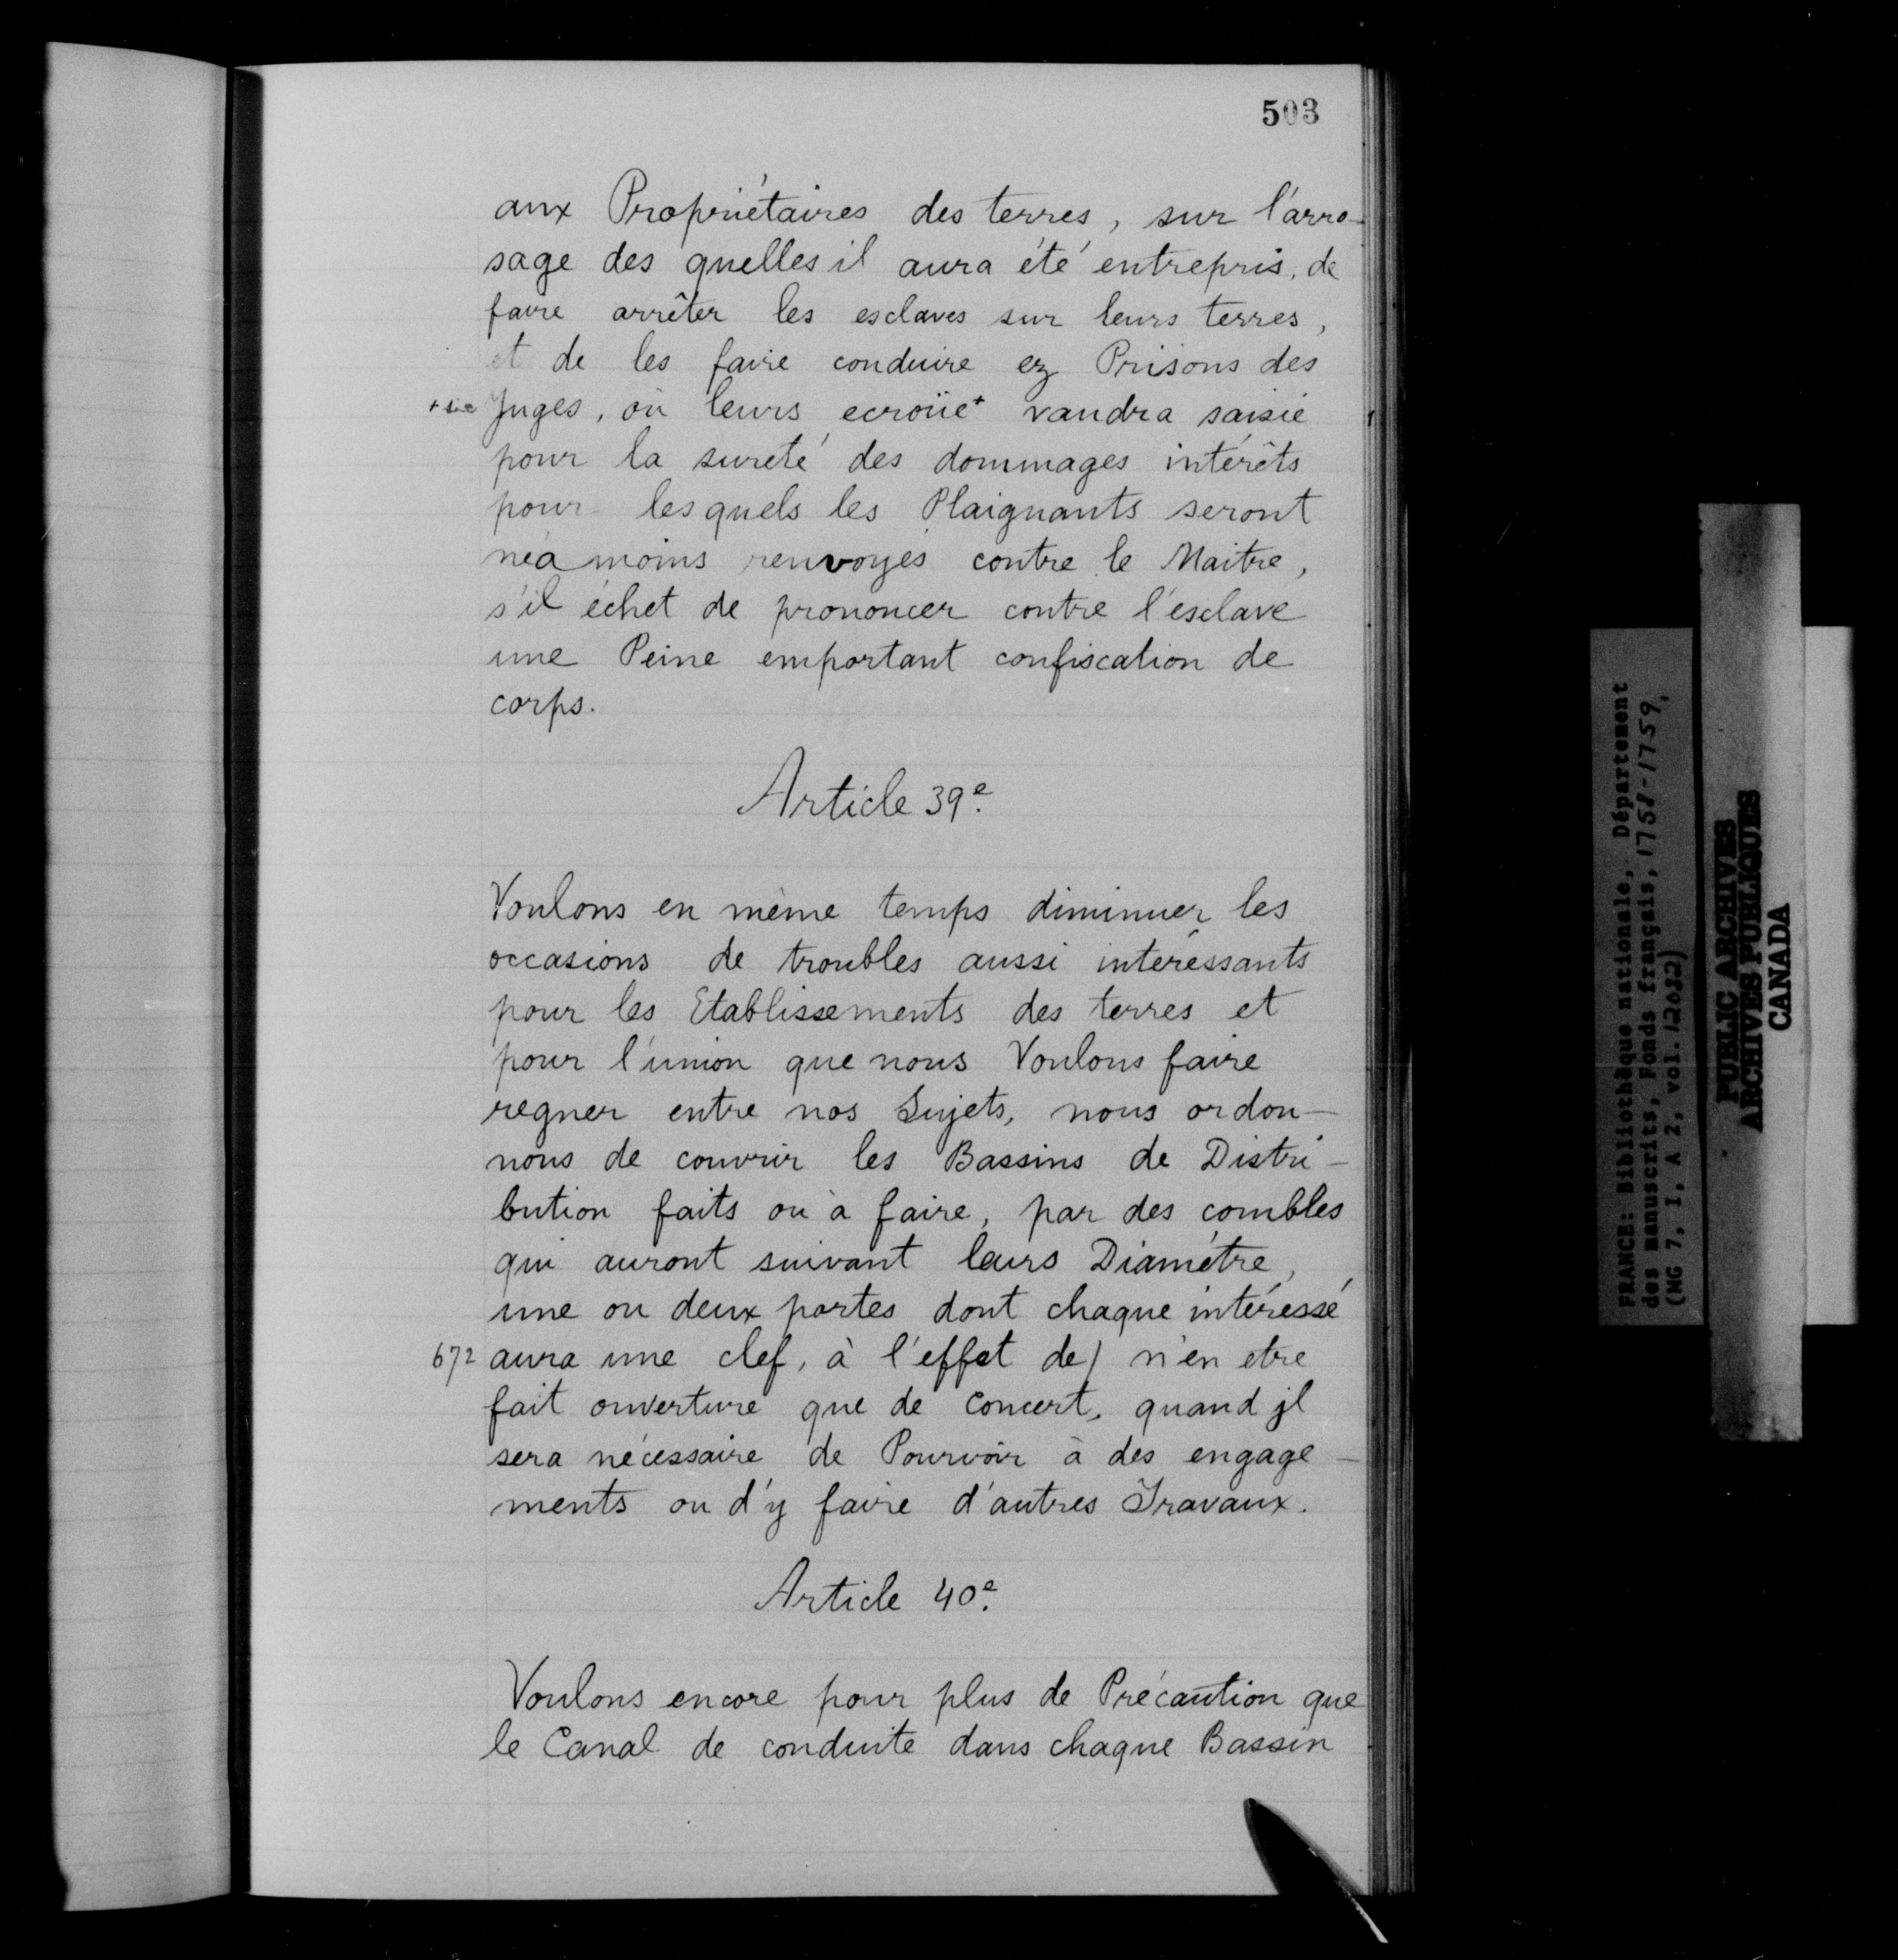 503
aux Propriétaires des terres, sur l'arro-
sage des quelles il aura été entrepris, de
faire arrêter les esclaves sur leurs terres,
et de les faire conduire ez Prisons des
+ sic Juges, où leurs ecroüe+ vaudra saisie
pour la sureté des dommages intérêts
pour lesquels les Plaignants seront
néamoins renvoyés contre le Maitre,
s'il échet de prononcer contre l'esclave
une Peine emportant confiscation de
corps.
Article 39e.
Voulons en même temps diminuer les
occasions de troubles aussi intéressants
pour les Etablissements des terres et
pour l'union que nous Voulons faire
regner entre nos Sujets, nous ordon-
nons de couvrir les Bassins de Distri-
bution faits ou à faire, par des combles
qui auront suivant leurs Diamétre,
une ou deux portes dont chaque intéressé
672 aura une clef, à l'effet de/ n'en etre
fait ouverture que de Concert, quand jl
sera nécessaire de Pourvoir à des engage-
ments ou d'y faire d'autres Travaux.
Article 40e.
Voulons encore pour plus de Précaution que
le Canal de conduite dans chaque Bassin
FRANCE: Bibliothèque nationale, Département
des manuscrits, Fonds français, 1758-1759,
(MG 7, I, A 2, vol. 12082)
PUBLIC ARCHIVES
ARCHIVES PUBLIQUES
CANADA